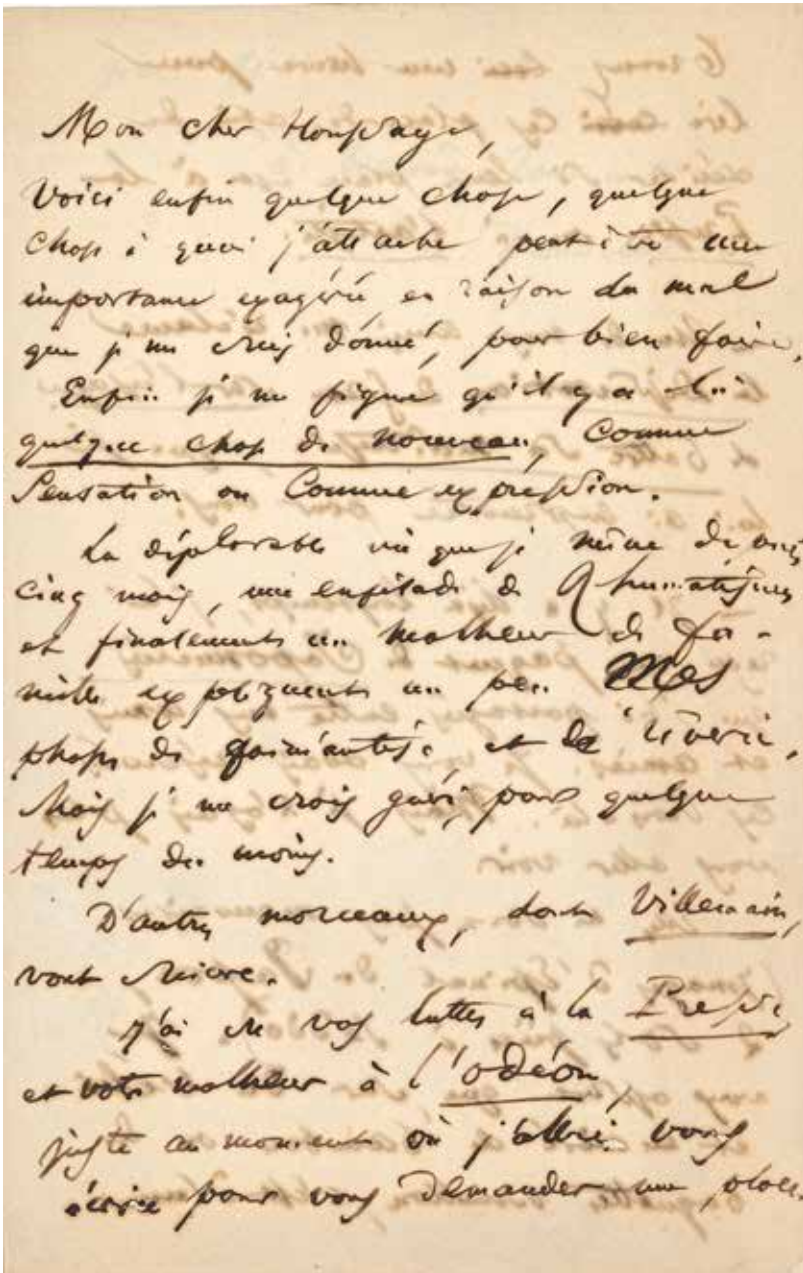 Mon cher Houssaye,
Voici enfin quelque chose, quelque
chose à quoi j'attache peut-être une
importance exagérée, en raison du mal
que je me suis donné, pour bien faire.
Enfin je me figure qu'il y a là
quelque chose de nouveau, comme
sensation ou comme expression.
La déplorable vie que je mène depuis
cinq mois, une enfilade de Rhumatismes
et finalement un malheur de fa-
mille expliquent un peu mes
phases de fainéantise et de rêverie.
Mais je me crois guéri, pour quelque
temps du moins.
D'autres morceaux, dont Villemain,
vont suivre.
J'ai su vos luttes à la Presse,
et votre malheur à l'Odéon,
juste au moment où j'allais vous
écrire pour vous demander une place.